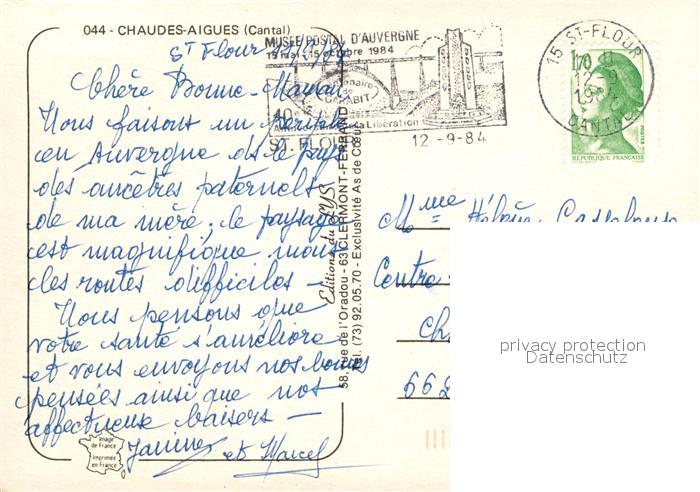 044 - CHAUDES-AIGUES (Cantal)
St Flour
MUSÉE POSTAL D'AUVERGNE
15 mai - 15 octobre 1984
Centenaire
de
GARABIT
40e
la Libération
ST. FLOUR
12 -9-84
15 ST-FLOUR
12-9
CANTAL
1,70
POSTES
REPUBLIQUE FRANÇAISE
Chère Bonne-Maman,
Nous faisons un périple
en Auvergne ds le pays
des ancêtres paternels
de ma mère; le paysage
est magnifique mais
les routes difficiles -
Nous pensons que
votre santé s'améliore
et vous envoyons nos bonnes
pensées ainsi que nos
affectueux baisers -
Janine
et Marcel
Image
de France
Imprimée
en France
Editions du LYS
58, rue de l'Oradou - 63 CLERMONT-FERRAND
Tél. (73) 92.05.70 - Exclusivité As de Cœur
Mme Hélène
Centre
Ch
662
privacy protection
Datenschutz